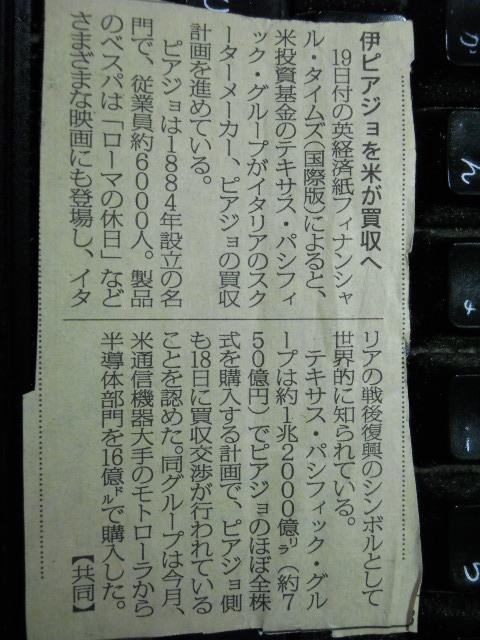 伊ピアジョを米が買収へ
19日付の英経済紙フィナンシャ
ル・タイムズ(国際版)によると、
米投資基金のテキサス・パシフィ
ック・グループがイタリアのスク
ーターメーカー、ピアジョの買収
計画を進めている。
ピアジョは1884年設立の名
門で、従業員約6000人。製品
のベスパは「ローマの休日」など
さまざまな映画にも登場し、イタ
リアの戦後復興のシンボルとして
世界的に知られている。
テキサス・パシフィック・グル
ープは約1兆2000億リラ(約7
50億円)でピアジョのほぼ全株
式を購入する計画で、ピアジョ側
も18日に買収交渉が行われている
ことを認めた。同グループは今月、
米通信機器大手のモトローラから
半導体部門を16億ドルで購入した。
【共同】
か
ん
ょ
ー
ら